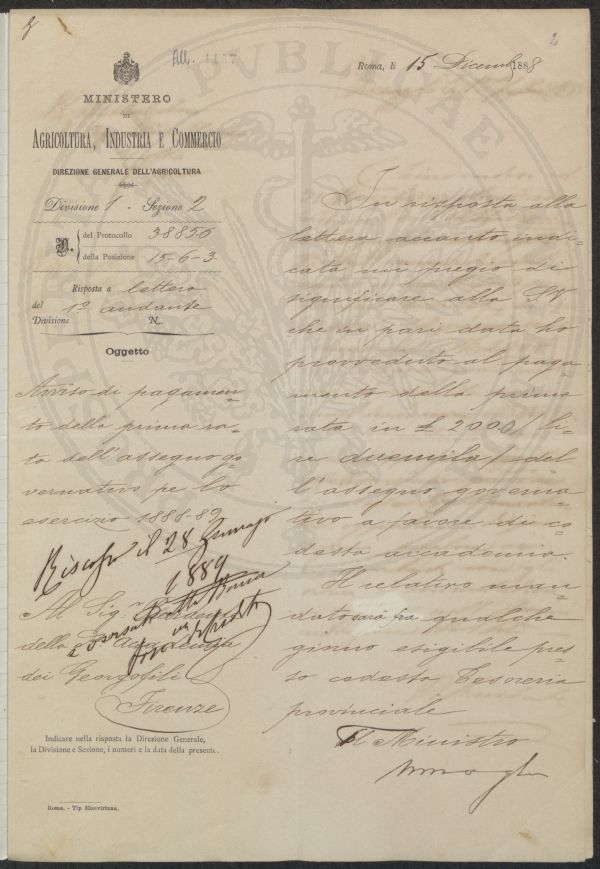 2
All. 1137
Roma, li 15 Dicemb 1888
MINISTERO
DI
AGRICOLTURA, INDUSTRIA E COMMERCIO
DIREZIONE GENERALE DELL'AGRICOLTURA
Divisione 1 - Sezione 2
N. del Protocollo 38856
della Posizione 15-6-3
Risposta a lettera
del 1º andante
Divisione N.
Oggetto
Avviso di pagamen-
to della prima ra-
ta dell'assegno go-
vernativo pe lo
esercizio 1888-89
Riscosso il 28 Gennajo
1889
e versati alla Banca
in
Al Sig.r
della R. Accademia
dei Georgofili
Firenze
Indicare nella risposta la Direzione Generale,
la Divisione e Sezione, i numeri e la data della presente.
Roma, - Tip Elzeviriana.
In risposta alla
lettera accanto indi-
cata mi pregio di
significare alla S.V.
che in pari data ho
provveduto al paga-
mento della prima
rata in £ 2000/li-
re duemila/del-
l'assegno governa-
tivo a favore di co-
desta accademia.
Il relativo man-
dato sarà fra qualche
giorno esigibile pres-
so codesta Tesoreria
provinciale
Il Ministro
PVBLICAE